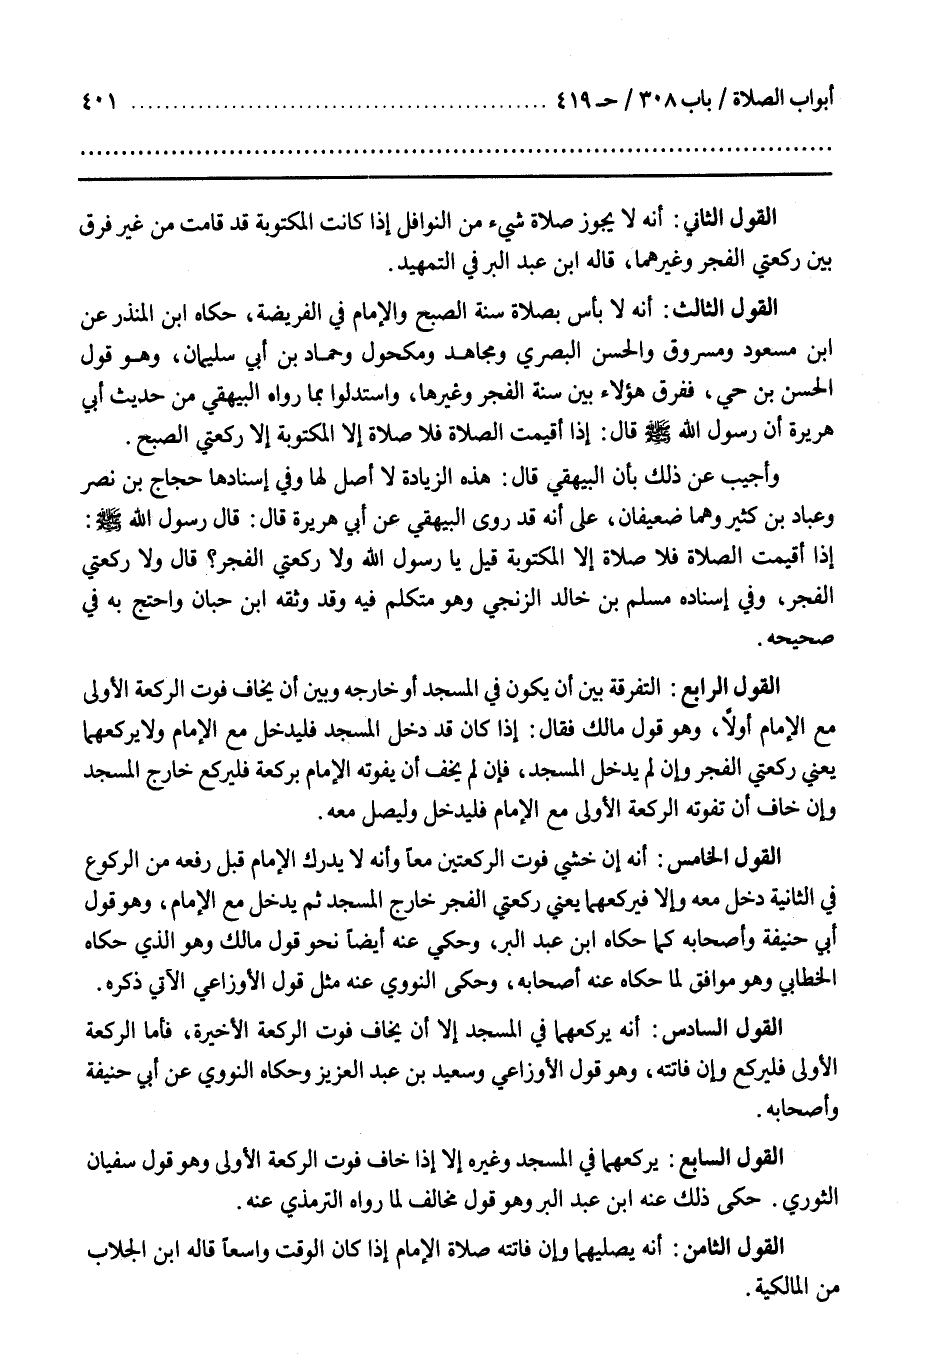 أبواب الصلاة / باب ٣٠٨ / حـ ٤١٩ ................................................ ٤٠١
القول الثاني: أنه لا يجوز صلاة شيء من النوافل إذا كانت المكتوبة قد قامت من غير فرق
بين ركعتي الفجر وغيرهما، قاله ابن عبد البر في التمهيد.
القول الثالث: أنه لا بأس بصلاة سنة الصبح والإمام في الفريضة، حكاه ابن المنذر عن
ابن مسعود ومسروق والحسن البصري ومجاهد ومكحول وحماد بن أبي سليمان، وهو قول
الحسن بن حي، ففرق هؤلاء بين سنة الفجر وغيرها، واستدلوا بما رواه البيهقي من حديث أبي
هريرة أن رسول الله ﷺ قال: إذا أقيمت الصلاة فلا صلاة إلا المكتوبة إلا ركعتي الصبح.
وأجيب عن ذلك بأن البيهقي قال: هذه الزيادة لا أصل لها وفي إسنادها حجاج بن نصر
وعباد بن كثير وهما ضعيفان، على أنه قد روى البيهقي عن أبي هريرة قال: قال رسول الله ﷺ:
إذا أقيمت الصلاة فلا صلاة إلا المكتوبة قيل يا رسول الله ولا ركعتي الفجر؟ قال ولا ركعتي
الفجر، وفي إسناده مسلم بن خالد الزنجي وهو متكلم فيه وقد وثقه ابن حبان واحتج به في
صحيحه.
القول الرابع: التفرقة بين أن يكون في المسجد أو خارجه وبين أن يخاف فوت الركعة الأولى
مع الإمام أولاً، وهو قول مالك فقال: إذا كان قد دخل المسجد فليدخل مع الإمام ولا يركعهما
يعني ركعتي الفجر وإن لم يدخل المسجد، فإن لم يخف أن يفوته الإمام بركعة فليركع خارج المسجد
وإن خاف أن تفوته الركعة الأولى مع الإمام فليدخل وليصل معه.
القول الخامس: أنه إن خشي فوت الركعتين معاً وأنه لا يدرك الإمام قبل رفعه من الركوع
في الثانية دخل معه وإلا فيركعهما يعني ركعتي الفجر خارج المسجد ثم يدخل مع الإمام، وهو قول
أبي حنيفة وأصحابه كما حكاه ابن عبد البر، وحكي عنه أيضاً نحو قول مالك وهو الذي حكاه
الخطابي وهو موافق لما حكاه عنه أصحابه، وحكى النووي عنه مثل قول الأوزاعي الآتي ذكره.
القول السادس: أنه يركعهما في المسجد إلا أن يخاف فوت الركعة الأخيرة، فأما الركعة
الأولى فليركع وإن فاتته، وهو قول الأوزاعي وسعيد بن عبد العزيز وحكاه النووي عن أبي حنيفة
وأصحابه.
القول السابع: يركعهما في المسجد وغيره إلا إذا خاف فوت الركعة الأولى وهو قول سفيان
الثوري. حكى ذلك عنه ابن عبد البر وهو قول مخالف لما رواه الترمذي عنه.
القول الثامن: أنه يصليهما وإن فاتته صلاة الإمام إذا كان الوقت واسعاً قاله ابن الجلاب
من المالكية.